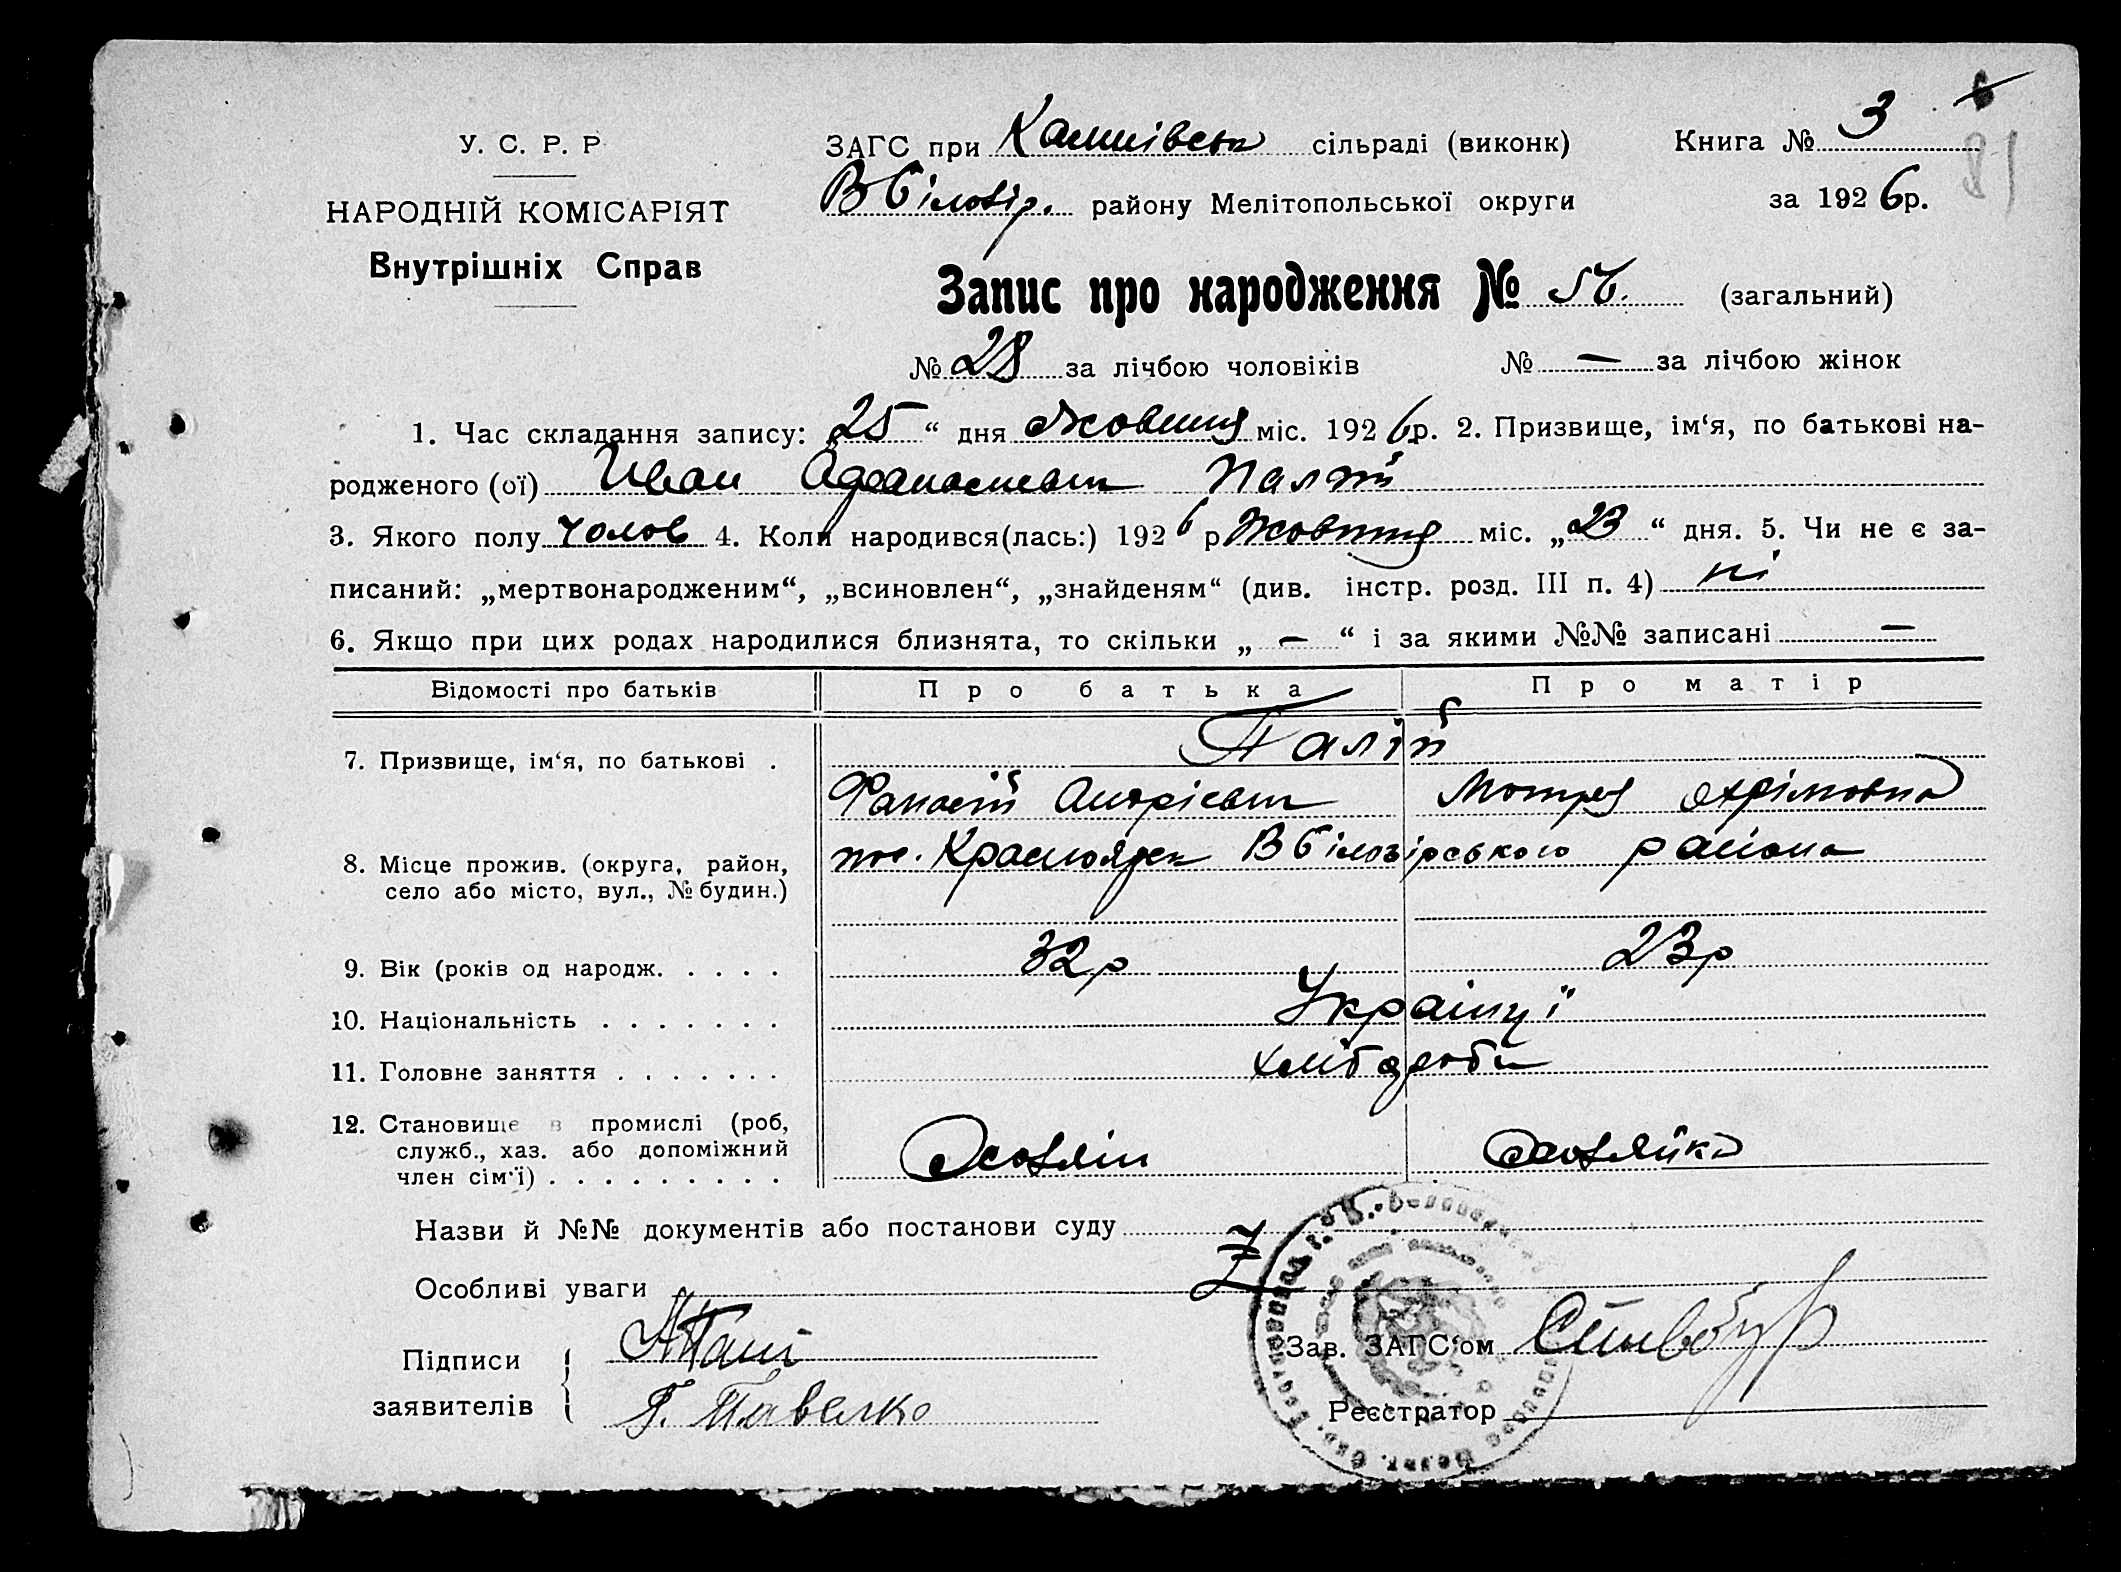 У. С. Р. Р
НАРОДНІЙ КОМІСАРІЯТ
Внутрішніх Справ
ЗАГС при сільраді (виконк) Книга № 3
В Білозір. району Мелітопольської округи за 1926 р.
81
Запис про народження № 56. (загальний)
№ 28 за лічбою чоловіків № — за лічбою жінок
1. Час складання запису: „25“ дня Жовтня міс. 1926 р. 2. Призвище, ім‘я, по батькові на-
родженого (ої) Иван Афанасиевич Палій
3. Якого полу чолов 4. Коли народився(лась:) 1926 р Жовтня міс. „23“ дня. 5. Чи не є за-
писаний: „мертвонародженим“, „всиновлен“, „знайденям“ (див. інстр. розд. III п. 4) ні
6. Якщо при цих родах народилися близнята, то скільки „—“ і за якими №№ записані —
Відомості про батьків Про батька Про матір
7. Призвище, ім‘я, по батькові . Палій
Фанасій Андрієвич Мотря Охрімовна
8. Місце прожив. (округа, район, пос. Красноярск В Білозірського района
село або місто, вул., № будин.)
9. Вік (років од народж. . . . . 32 р 23 р
10. Національність . . . . . . . Українці
11. Головне заняття . . . . . . . хлібороби
12. Становище в промислі (роб,
служб., хаз. або допоміжний Хозяїн Хозяйка
член сім‘ї) . . . . . . . . .
Назви й №№ документів або постанови суду
Особливі уваги
Підписи
заявителів
Зав. ЗАГС‘ом
Реєстратор